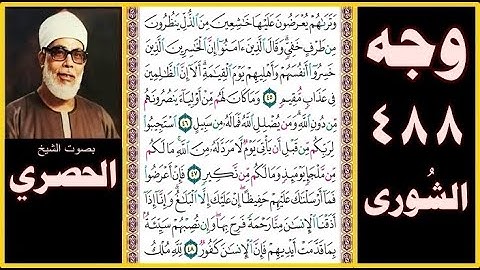 وجه
٤٨٨
الشُورى
وَتَرَىٰهُمْ يُعْرَضُونَ عَلَيْهَا خَٰشِعِينَ مِنَ ٱلذُّلِّ يَنظُرُونَ
مِن طَرْفٍ خَفِىٍّ وَقَالَ ٱلَّذِينَ ءَامَنُوٓا۟ إِنَّ ٱلْخَٰسِرِينَ ٱلَّذِينَ
خَسِرُوٓا۟ أَنفُسَهُمْ وَأَهْلِيهِمْ يَوْمَ ٱلْقِيَٰمَةِ أَلَآ إِنَّ ٱلظَّٰلِمِينَ
فِى عَذَابٍ مُّقِيمٍ ٤٥ وَمَا كَانَ لَهُم مِّنْ أَوْلِيَآءَ يَنصُرُونَهُم
مِّن دُونِ ٱللَّهِ وَمَن يُضْلِلِ ٱللَّهُ فَمَا لَهُۥ مِن سَبِيلٍ ٤٦ ٱسْتَجِيبُوا۟
لِرَبِّكُم مِّن قَبْلِ أَن يَأْتِىَ يَوْمٌ لَّا مَرَدَّ لَهُۥ مِنَ ٱللَّهِ مَا لَكُم
مِّن مَّلْجَإٍ يَوْمَئِذٍ وَمَا لَكُم مِّن نَّكِيرٍ ٤٧ فَإِنْ أَعْرَضُوا۟
فَمَآ أَرْسَلْنَٰكَ عَلَيْهِمْ حَفِيظًا إِنْ عَلَيْكَ إِلَّا ٱلْبَلَٰغُ وَإِنَّآ إِذَآ
أَذَقْنَا ٱلْإِنسَٰنَ مِنَّا رَحْمَةً فَرِحَ بِهَا وَإِن تُصِبْهُمْ سَيِّئَةٌۢ
بِمَا قَدَّمَتْ أَيْدِيهِمْ فَإِنَّ ٱلْإِنسَٰنَ كَفُورٌ ٤٨ لِّلَّهِ مُلْكُ
بصوت الشيخ
الحصري